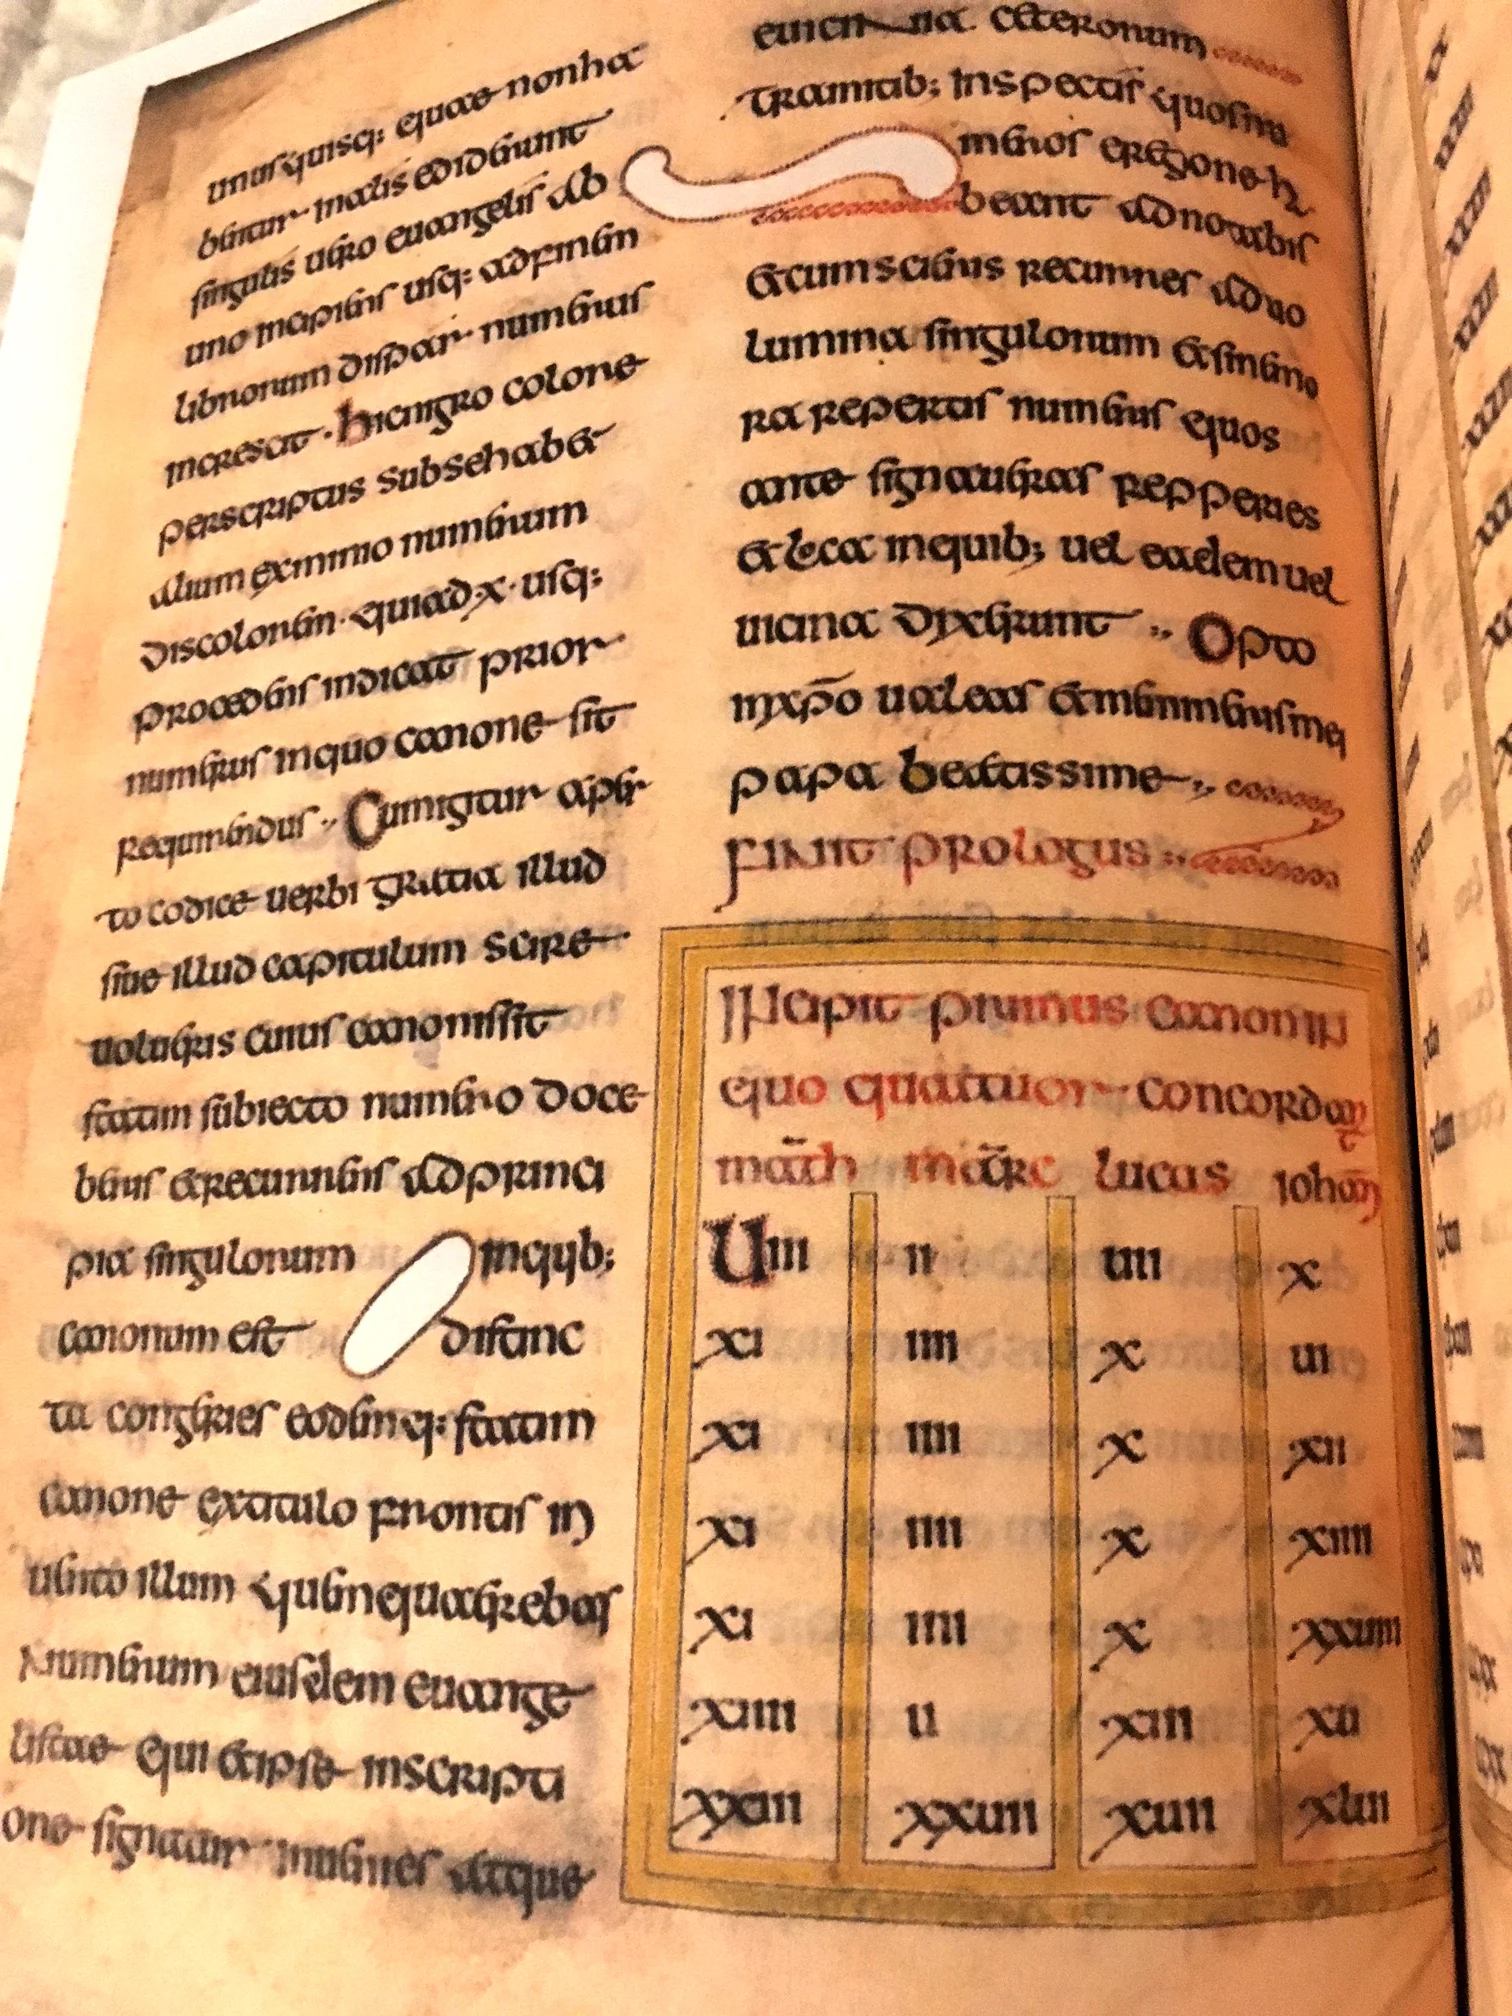 unusquisq: quae non ha
bentur in aliis ediderunt
singulis uero euangeliis ab
uno incipiens usq: ad finem
librorum dispar numerus
increscit. hic nigro colore
perscriptus sub se habet
alium ex minio numerum
discolorem. qui ad .x. usq:
procedens indicat prior
numerus in quo canone sit
requirendus. Cum igitur aper
to codice uerbi gratia illud
siue illud capitulum scire
uolueris cuius canonis sit
statim subiecto numero doce
beris et recurrens ad princi
pia singulorum inquib:
canonum est distinc
ta congeries eodemq: statim
canone ex titulo frontis in
uento illum quem quaerebas
numerum eiusdem euange
listae qui et ipse inscripti
one signatur inuenies atque
e uicina ceterorum
tramitib; inspectis quos nu
meros e regione ha
beant adnotabis
et cum scieris recurres ad uo
lumina singulorum et sine mo
ra repertis numeris quos
ante signaueras repperies
et loca in quib; uel eadem uel
uicina dixerunt. Opto
in xp̄o ualeas et memineris mei
papa beatissime
finit prologus
Incipit primus canon in
quo quattuor concordant
math marc lucas iohan
Uiii ii uii x
xi iiii x ui
xi iiii x xii
xi iiii x xiiii
xi iiii x xxuiii
xiiii u xiii xu
xxiii xxuii xuii xlui